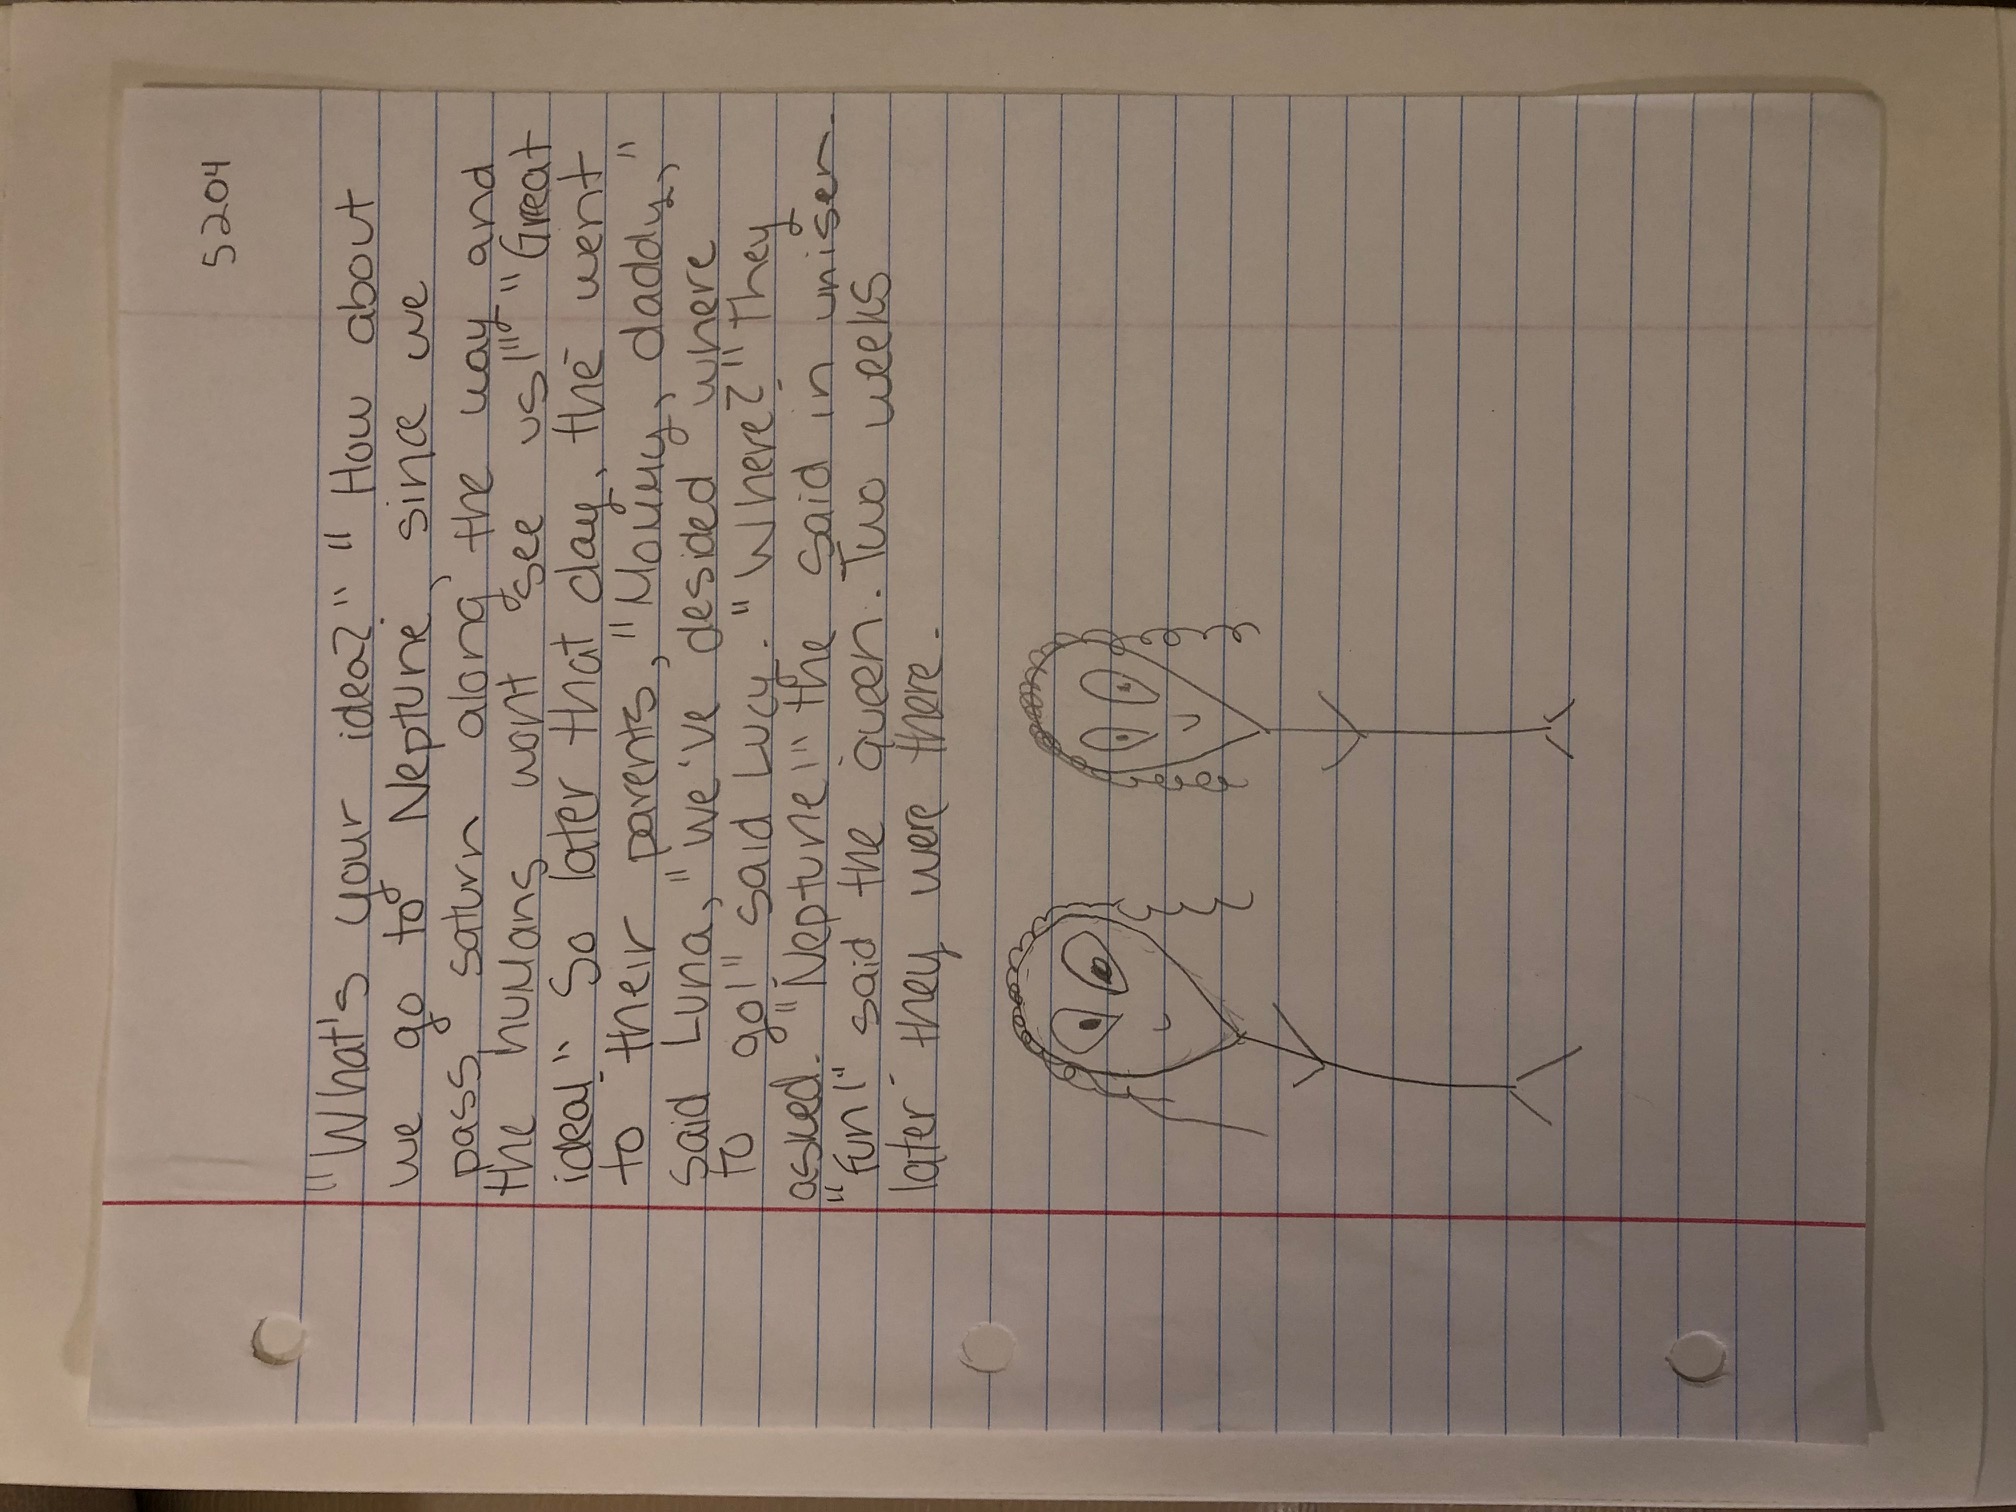 5204
"What's your idea?" "How about
we go to Neptune, since we
pass saturn along the way and
the humans wont see us!" "Great
idea!" So later that day, the went
to their parents, "Mommy, daddy,"
said Luna, "we've desided where
to go!" said Lucy. "Where?" they
asked. "Neptune!" the said in unisen.
"fun!" said the queen. Two weeks
later they were there.